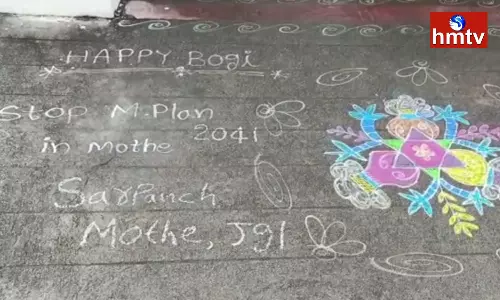 hmtv
HAPPY Bogi
Stop M.Plan
2041
in Mothe
Sarpanch
Mothe, Jgl